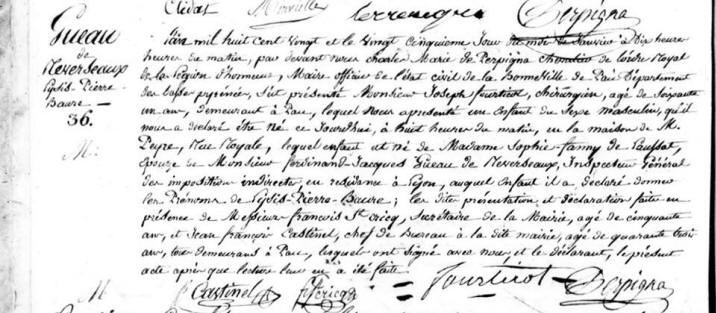 Clédat
Perpigna
Gueau
de
Neverseaux
Pierre
Baure —
36.
L'an mil huit cent vingt et le vingt cinquième Jour du mois de Janvier à Dix heures
heures du matin, par devant nous Charles Marie de Perpigna Chevalier de l'ordre Royal
de la Légion d'honneur, Maire officier de l'état civil de la Bonne Ville de Pau Département
des basses pyrénées, S'est présenté Monsieur Joseph fourticot, chirurgien, agé de Soixante
un ans, demeurant à Pau, lequel nous a présenté un Enfant du Sexe masculin, qu'il
nous a déclaré être né ce Jourd'hui, à huit heures du matin, en la maison de M.
Peyre, Rue Royale, lequel enfant est né de Madame Sophie-Fanny de Laussat,
épouse de Monsieur ferdinand Jacques Gueau de Neverseaux, Inspecteur Général
des impositions indirectes, en residence à, auquel Enfant il a déclaré donner
les Prénoms de Pierre-Baure; les dites présentation et déclaration faites en
présence de Messieurs francois St cricq, Secrétaire de la Mairie, agé de cinquante
ans, et Jean françois Castinel, chef de Bureau à la dite mairie, agé de quarante trois
ans, tous demeurans à Pau, lesquels ont signé avec nous et le déclarant, le présent
acte après que lecture leur en a été faite.
M Castinel St cricq = fourticot Perpigna